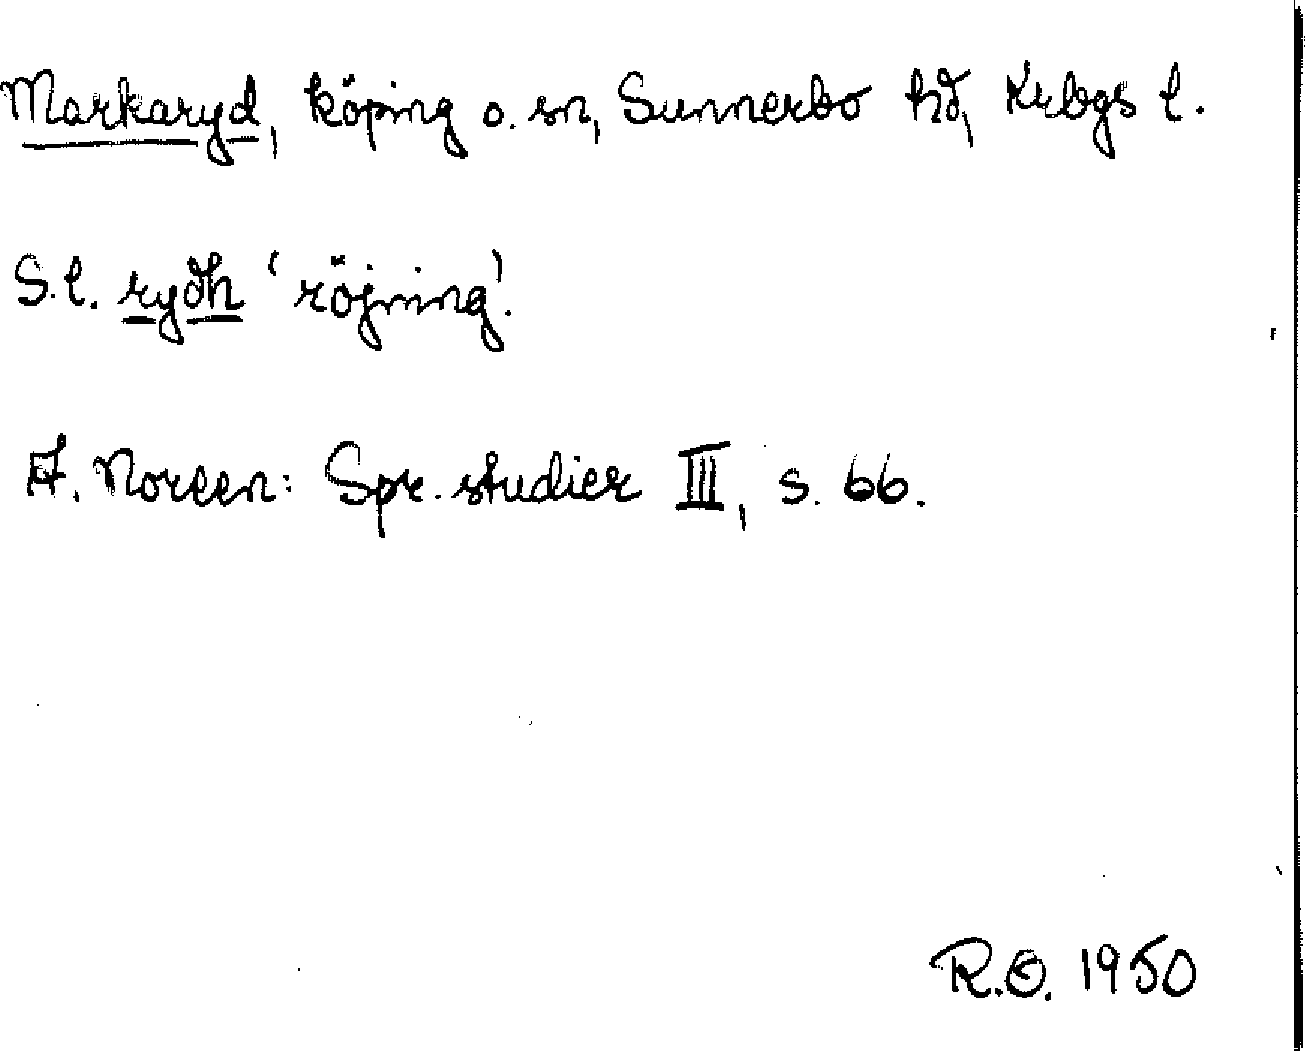 Markaryd, köping o. sn, Sunnerbo hd, Krbgs l.
S.l. rydh 'röjning'.
A. Noreen: Spr. studier III, s. 66.
R.O. 1950